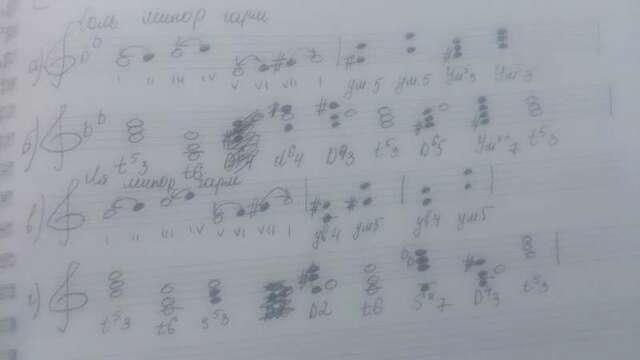 Соль минор гарм
а) I II III IV V VI VII I ум.5 ум.5 Ум5 3 Ум5 3
б) t5 3 t6 D4 3 t5 3 D6 5 Ум 7 t5 3
Ля минор гарм
в) I II III IV V VI VII I ув4 ум5 ув4 ум5
г) t5 3 t6 s5 3 D2 t6 7 D4 3 t5 3